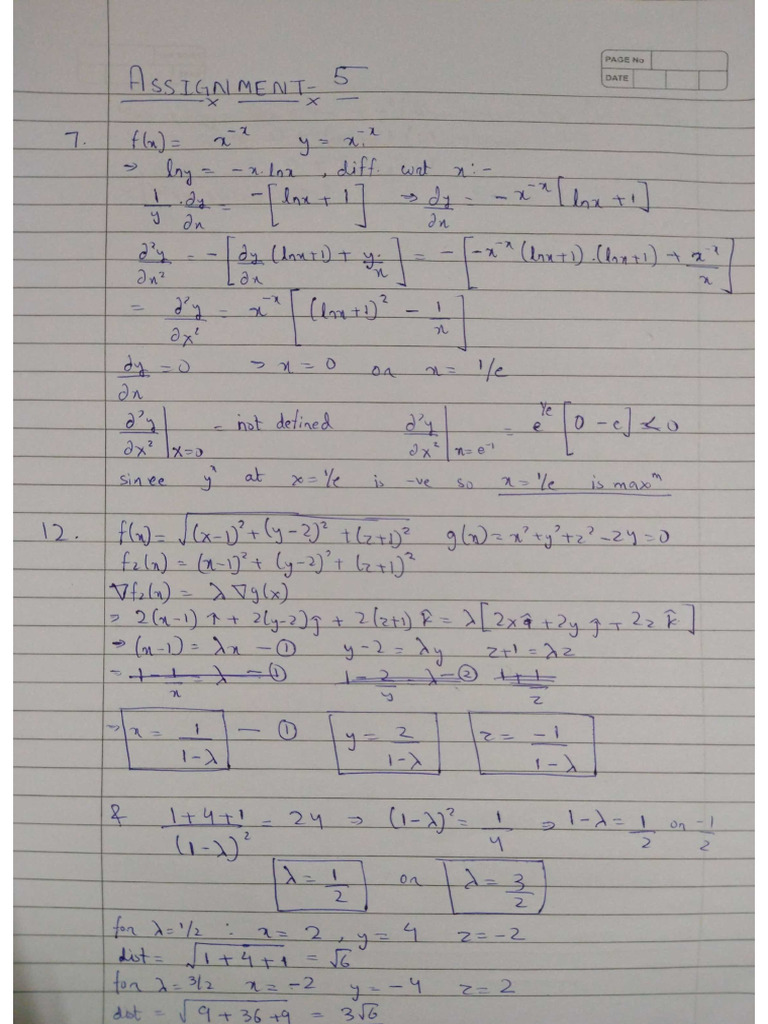 PAGE No
DATE
ASSIGNMENT- 5
7. f(x) = x^{-x} y = x^{-x}
⇒ lny = -x.lnx , diff. wrt x:-
1/y . ∂y/∂x = -[lnx + 1] ⇒ ∂y/∂x = -x^{-x}[lnx+1]
∂²y/∂x² = -[∂y/∂x (lnx+1) + y/x] = -[-x^{-x}(lnx+1).(lnx+1) + x^{-x}/x]
= ∂²y/∂x² = x^{-x}[(lnx+1)² - 1/x]
∂y/∂x = 0 ⇒ x = 0 or x = 1/e
∂²y/∂x²|x=0 = not defined ∂²y/∂x²|x=e^{-1} = e^{1/e}[0-e] < 0
since y" at x=1/e is -ve so x=1/e is max^m
12. f(x) = √((x-1)²+(y-2)²+(z+1)²) g(x) = x²+y²+z²-2y=0
f2(x) = (x-1)²+(y-2)²+(z+1)²
∇f2(x) = λ∇g(x)
= 2(x-1)î + 2(y-2)ĵ + 2(z+1)k̂ = λ[2xî + 2yĵ + 2zk̂]
⇒ (x-1) = λx — ① y-2 = λy z+1 = λz
= 1 - 1/x = λ — ① 1 - 2/y = λ — ② 1 + 1/z
⇒ x = 1/(1-λ) — ① y = 2/(1-λ) z = -1/(1-λ)
& (1+4+1)/(1-λ)² = 24 ⇒ (1-λ)² = 1/4 ⇒ 1-λ = 1/2 or -1/2
λ = 1/2 or λ = 3/2
for λ=1/2 : x = 2 , y = 4 z = -2
dist = √(1+4+1) = √6
for λ=3/2 x = -2 y = -4 z = 2
dist = √(9+36+9) = 3√6